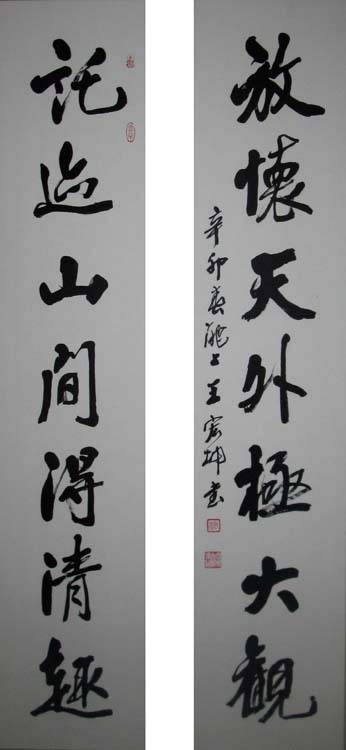 放懷天外極大觀
辛卯春上王坤书
託迹山間得清趣